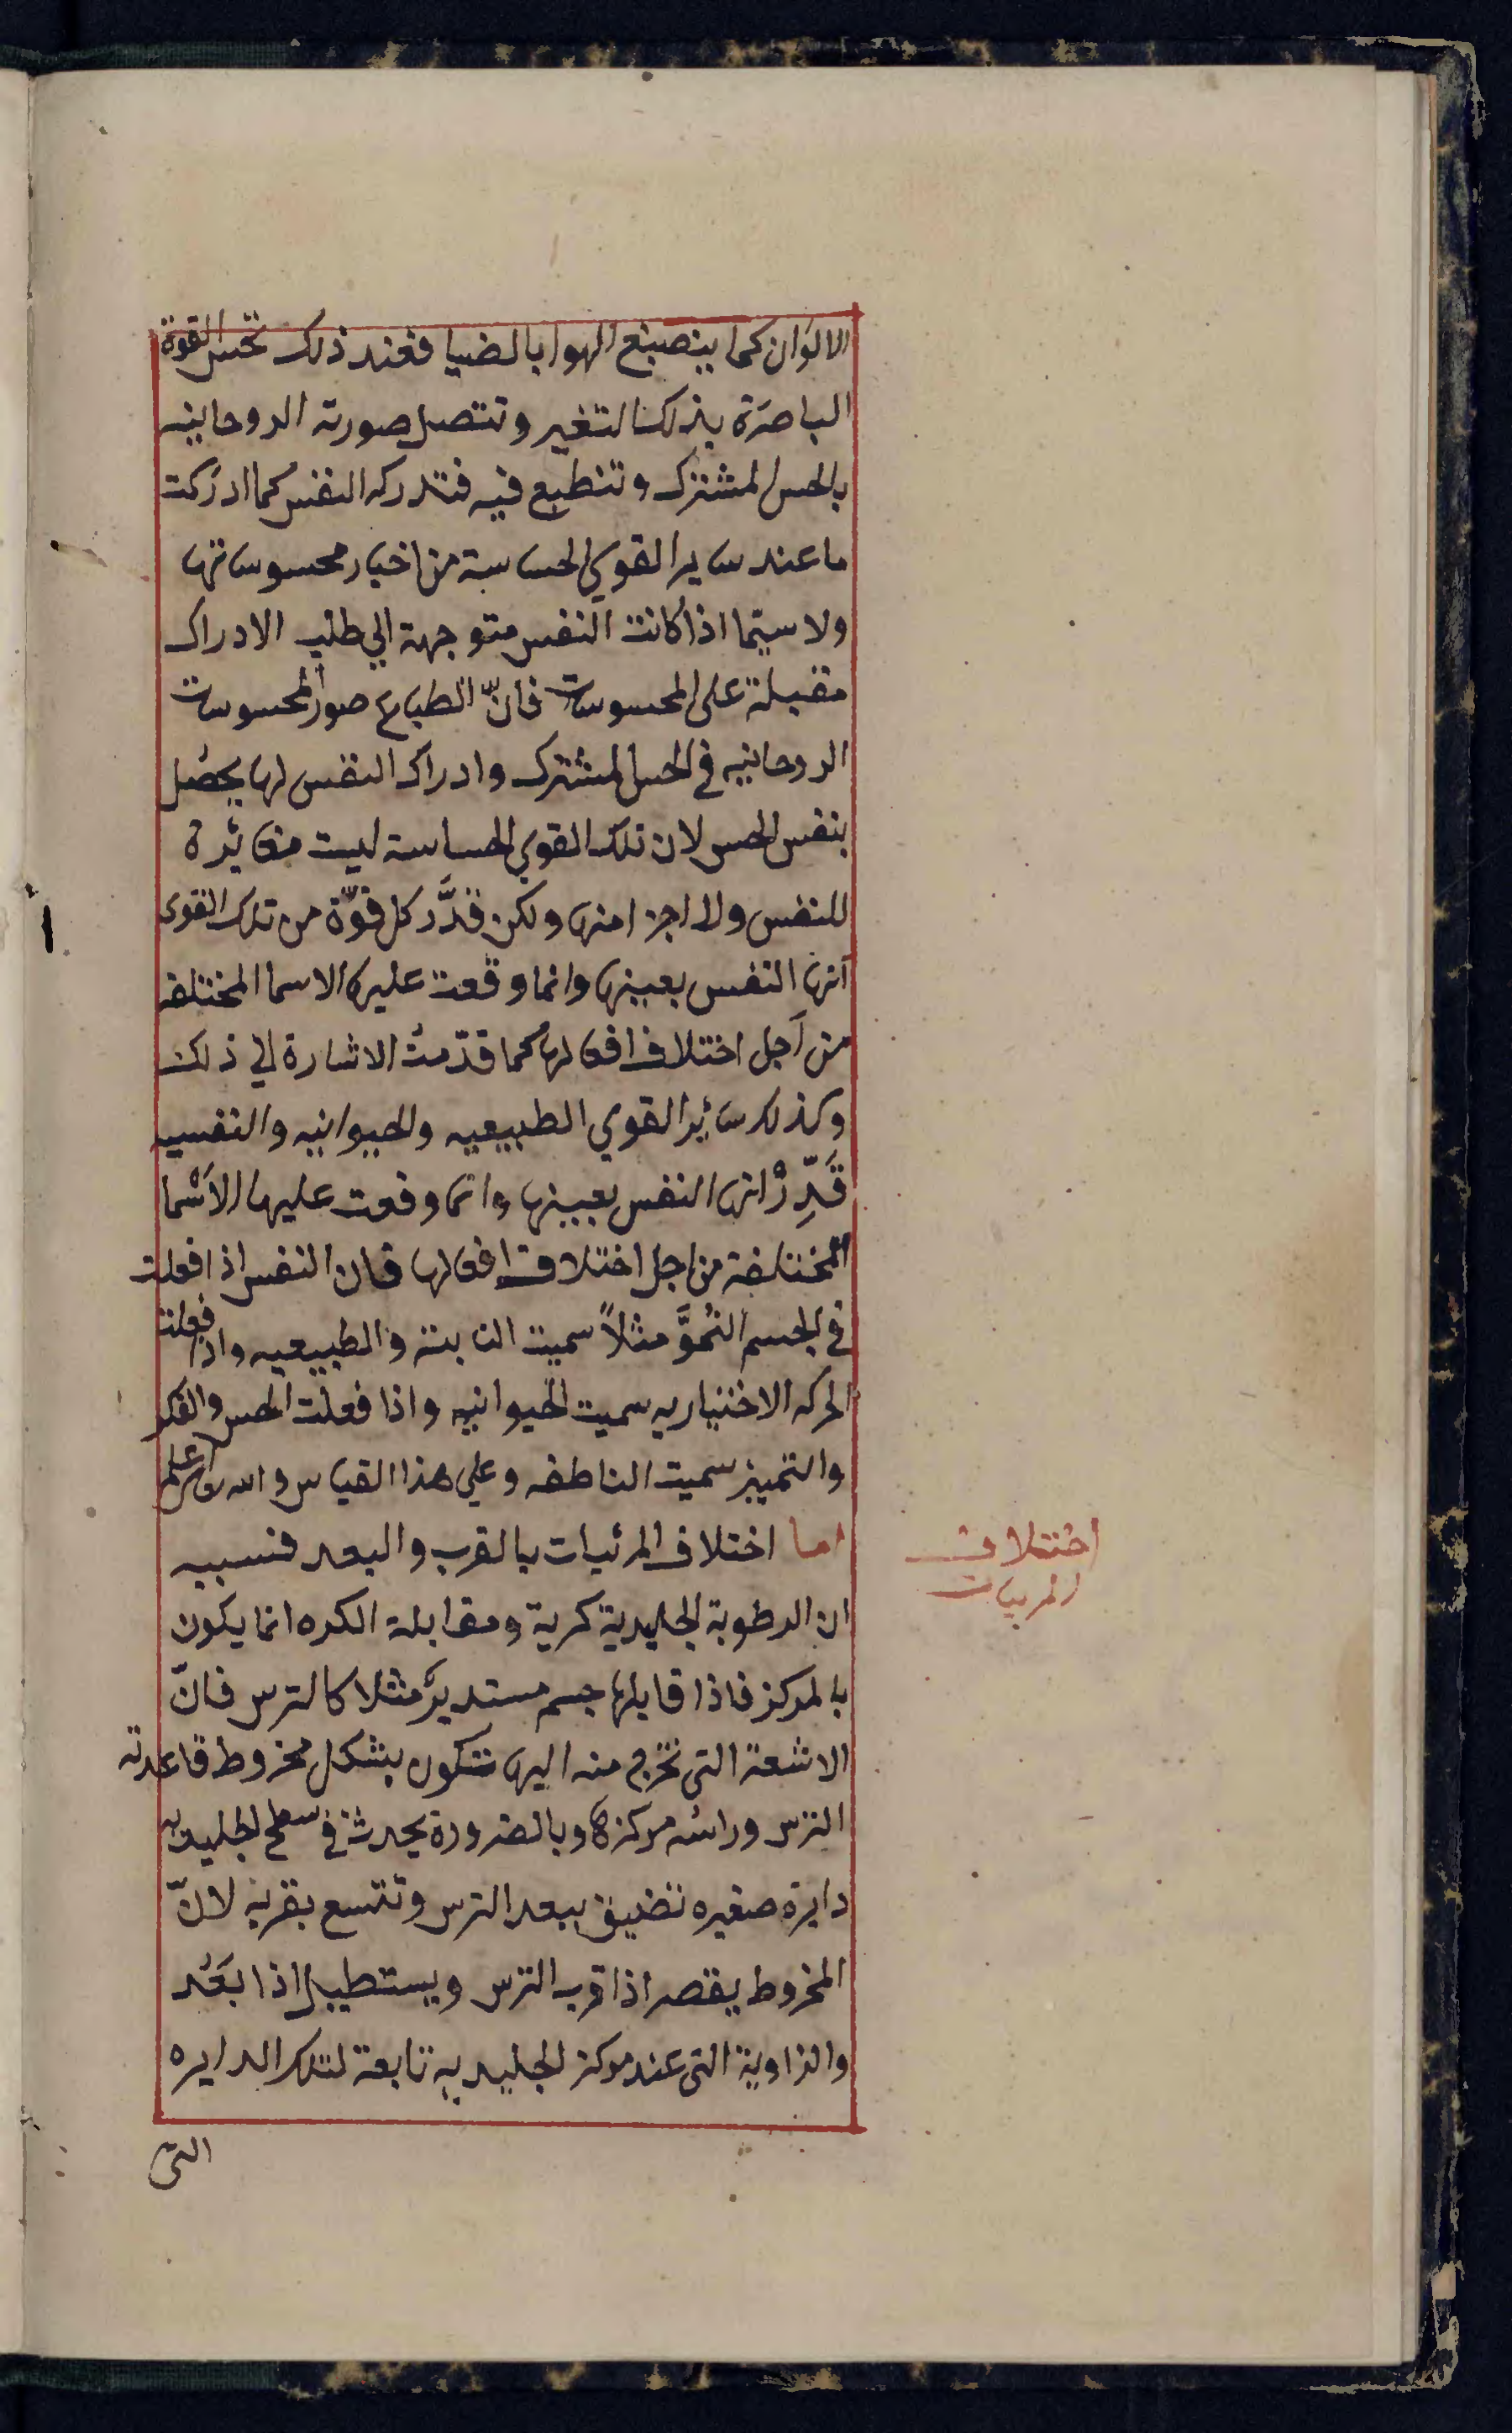 الالوان كما ينصبغ الهوا بالضيا فعند ذلك تحس القوة
الباصرة بذلك التغير وتتصل صورته الروحانيه
بالحس المشترك وتنطبع فيه فتدركه النفس كما ادركت
ما عند ساير القوي الحساسة من اخبار محسوساتها
ولا سيّما اذا كانت النفس متوجهة الي طلب الادراك
مقبلة على المحسوسات فانّ انطباع صور المحسوسات
الروحانيه في الحس المشترك وادراك النفس لها يحصُل
بنفس الحس لان تلك القوي الحساسة ليست مغائرة
للنفس ولا اجزا منها ولكن قدَّر كل قوّة من تلك القوى
انها النفس بعينها وانما وقعت عليها الاسما المختلفه
من اَجل اختلاف افعالها كما قدّمتُ الاشارة الي ذلك
وكذلك سائر القوي الطبيعيه والحيوانيه والنفسيه
قَدِّرْ انها النفس بعينها وانما وقعت عليها الاَسْما
المختلفة من اجل اختلاف افعالها فان النفس اذا فعلت
في الجسم النُموَّ مثلاً سميت النابتة والطبيعيه واذا فعلت
الحركه الاختياريه سميت الحيوانيه واذا فعلت الحس والفكر
والتمييز سميت الناطقه وعلي هذا القياس والله اعلم
اما اختلاف المرئيات بالقرب والبعد فسببه
اختلاف
المريات
ان الرطوبة الجليدية كرية ومقابلة الكره انما يكون
بالمركز فاذا قابلها جسم مستديرٌ مثلا كالترس فانّ
الاشعة التي تخرج منه اليها تتكون بشكل مخروط قاعدته
الترس وراسُه مركزها وبالضرورة يحدث في سطح الجليديه
دايرة صغيره تضيق ببعد الترس وتتسع بقربه لانّ
المخروط يقصر اذا قرب الترس ويستطيل اذا بَعُد
والزاوية التي عند مركز الجليديه تابعة لتلك الدايره
التى